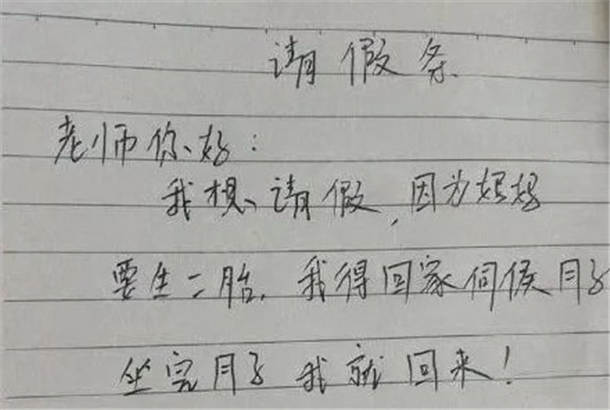 请假条
老师你好:
我想请假,因为妈妈
要生二胎,我得回家伺候月子
坐完月子我就回来!